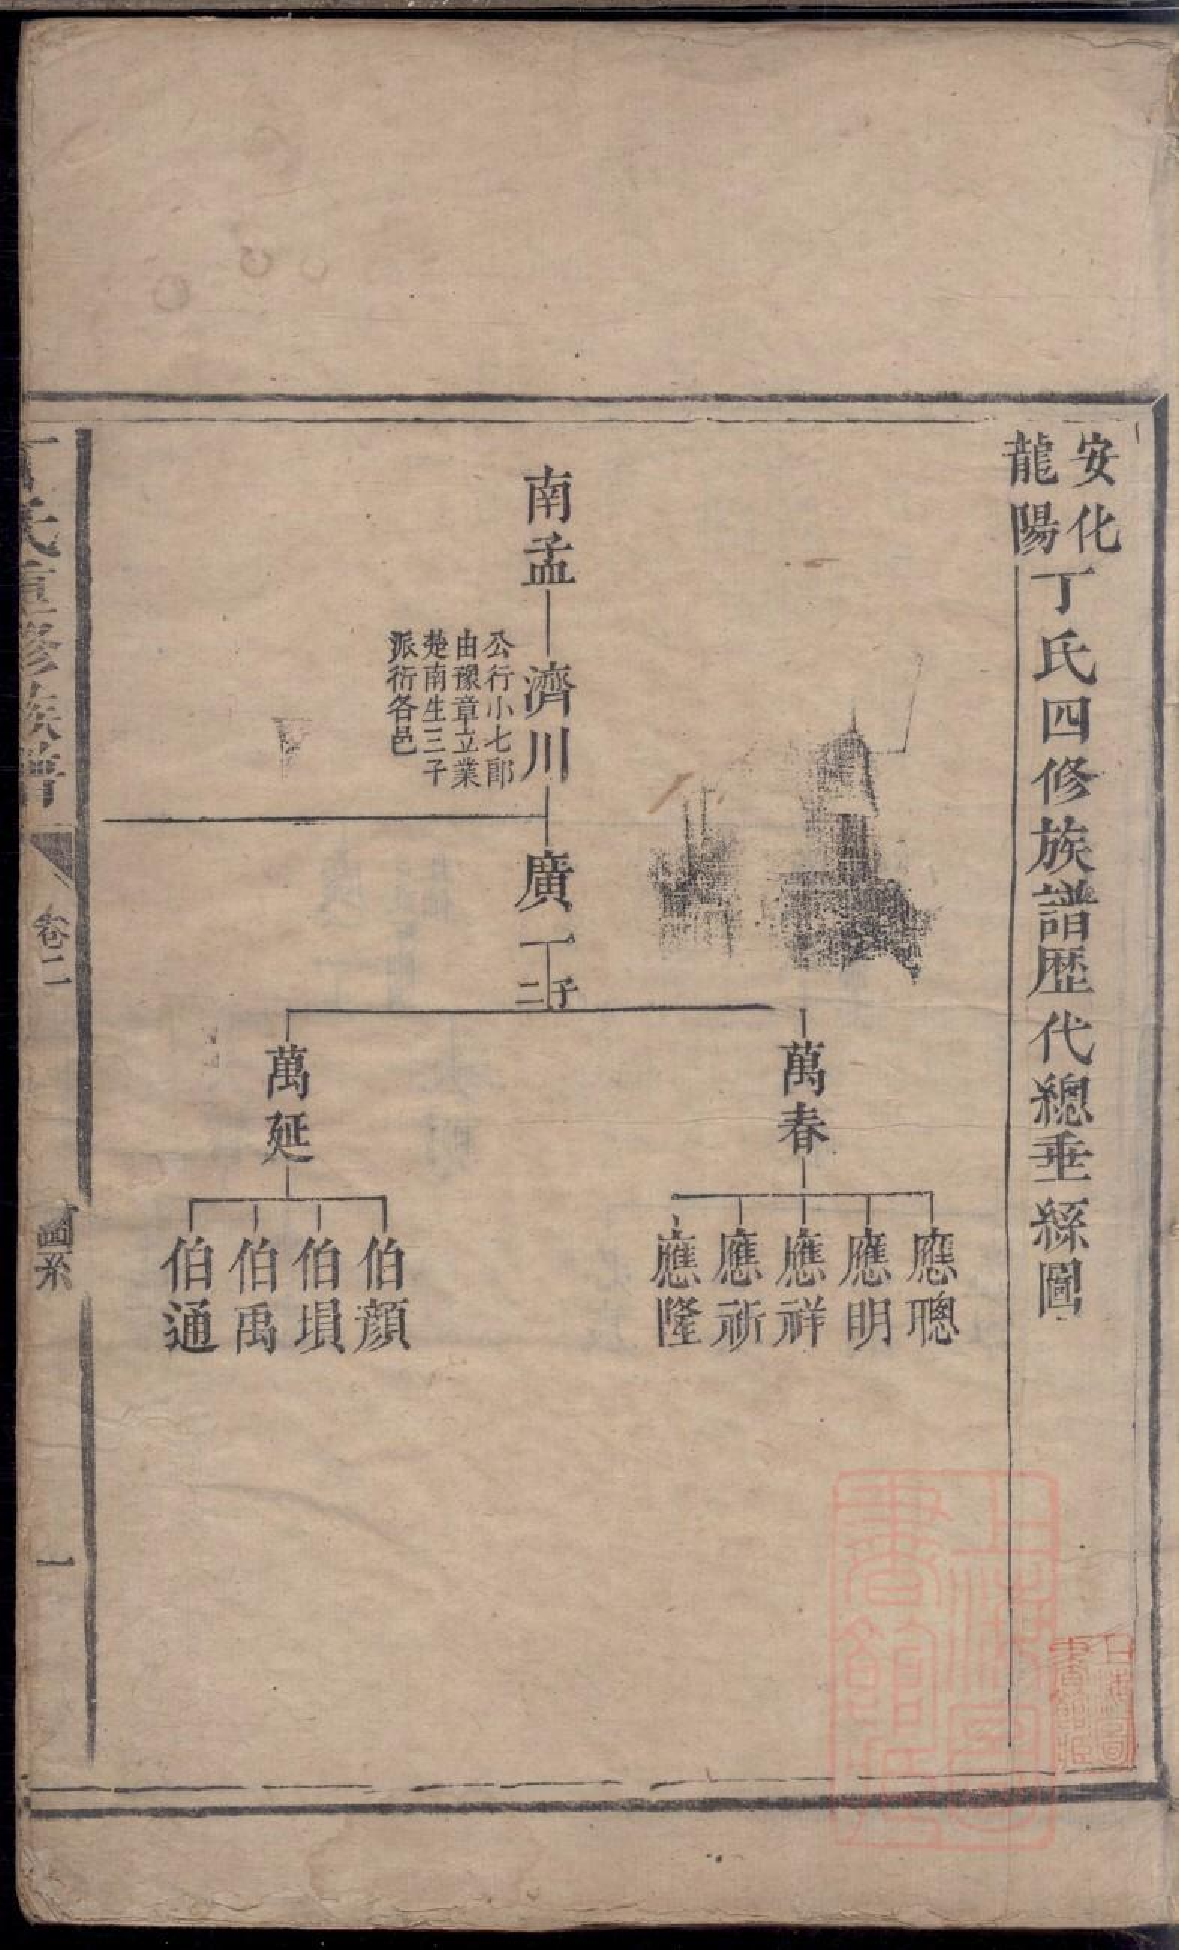 安化
龍陽
丁氏四修族譜歷代總垂絲圖
南孟
濟川
公行小七郎
由豫章立業
楚南生三子
派衍各邑
廣一
二子
萬春
萬延
應聰
應明
應祥
應祈
應隆
伯顏
伯塤
伯禹
伯通
丁氏重修族譜
卷二
圖系
一
上海圖書館藏
上海圖書館藏